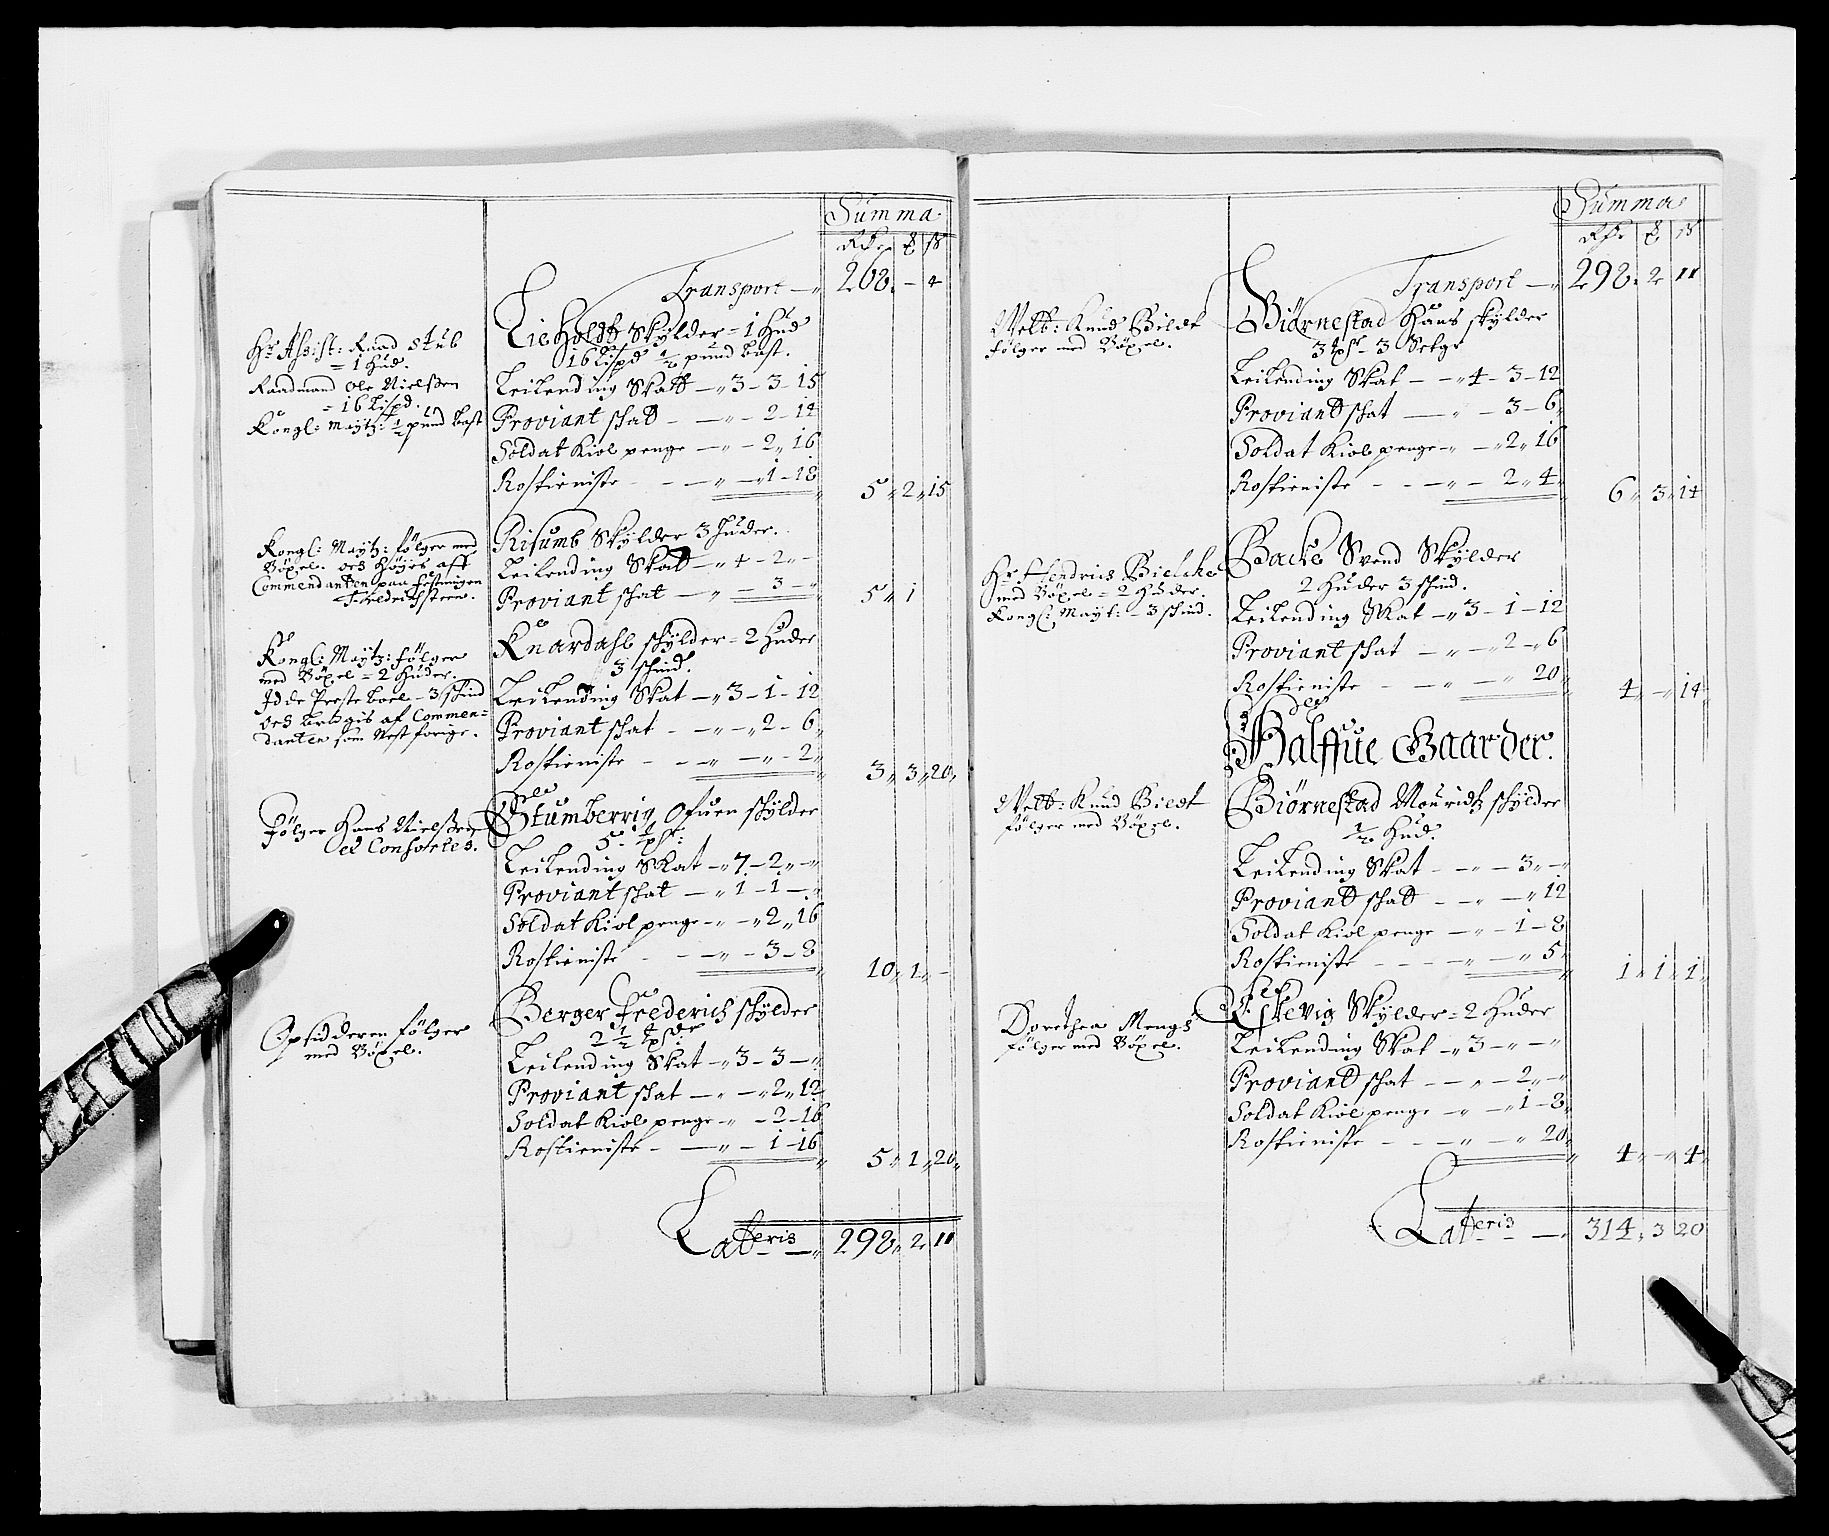 Summa
Rdr ₰ ß
Transport — 268 - 4
Hr. Assist: Raad Stub
= 1 Hud.
Raadmand Ole Nielßen
= 16 Lispd.
Kongl: Maÿtz: ½ pund kast
Lieholdt Skÿlder = 1 Hud
16 Lispd ½ pund kast.
Leilending Skatt — 3 - 3 - 15
Proviant schatt — 2 - 14
Soldat Kiolpenge — 2 „ 16
Rostieniste — 1 - 18
5 „ 2 „ 15
Kongl: Maÿtz: følger med
Bøxel. och bÿges aff
Commendanten paa festningen
Fredrichsteen.
Risumb Skÿlder 3 Huder.
Leilending Skatt — 4 - 2 „ -
Proviant schat — 3 —
5 „ 1
Kongl: Maÿtz: følger
med Bøxel = 2 Huder.
Idde Preste boel - 3 schind
och brugis af Commen=
danten som Nest forige.
Knardahl schÿlder = 2 Huder
3 schind.
Leilending Skat — 3 - 1 - 12
Proviant schat — 2 - 6
Rostieniste — 2
3 „ 3 „ 20
Følger Hans Nielßen
ed Consortes.
Stumberrig Ofuen schÿlder
5 ½ pd:
Leilending Skat — 7 - 2 „ -
Proviant schat — 1 - 1 —
Soldat Kiol penge — 2 „ 16
Rostieniste — 3 - 8
10 „ 1 „ -
Opsidderen følger
med Bøxel.
Berger Frederich schÿlder
2 ½
Leilending Skat — 3 - 3 —
Proviant schat — 2 „ 12
Soldat Kiol penge — 2 - 16
Rostieniste — 1 - 16
5 „ 1 „ 20
Lateris — 298 „ 2 „ 11
Summa
Rdr ₰ ß
Transport — 298 „ 2 „ 11
Welb: Knud Bildt
følger med Bøxel.
Biørnestad Hans schÿlder
3 - 3 Setgr
Leilending Skat — 4 - 3 - 12
Proviant schat — 3 - 6
Soldat Kiol penge — 2 „ 16
Rostieniste — 2 „ 4
6 „ 3 „ 14
Hr. Hendrich Bielche
med Bøxel = 2 Huder.
Kongl: Maÿt: - 3 schind.
Backe Svend Skÿlder
2 Huder 3 schind.
Leilending Skat — 3 - 1 - 12
Proviant schat — 2 „ 6
Rostieniste — 20
4 „ - „ 14
Halffue Gaarder.
Welb: Knud Bildt
følger med Bøxel.
Biørnestad Mouridtz schÿlder
½ Hud.
Leilending Skat — 3 „ -
Proviant schatt — 12
Soldat Kiol penge — 1 - 8
Rostieniste — 5
1 „ 1 „ 1
Dorethea Mengs
følger med Bøxel.
Eskevig Skÿlder = 2 Huder
Leilending Skat — 3 „ - „
Proviant schat — 2 „ -
Soldat Kiol penge — 1 - 8
Rostieniste — 20
4 „ - „ 4
Lateris — 314 „ 3 „ 20